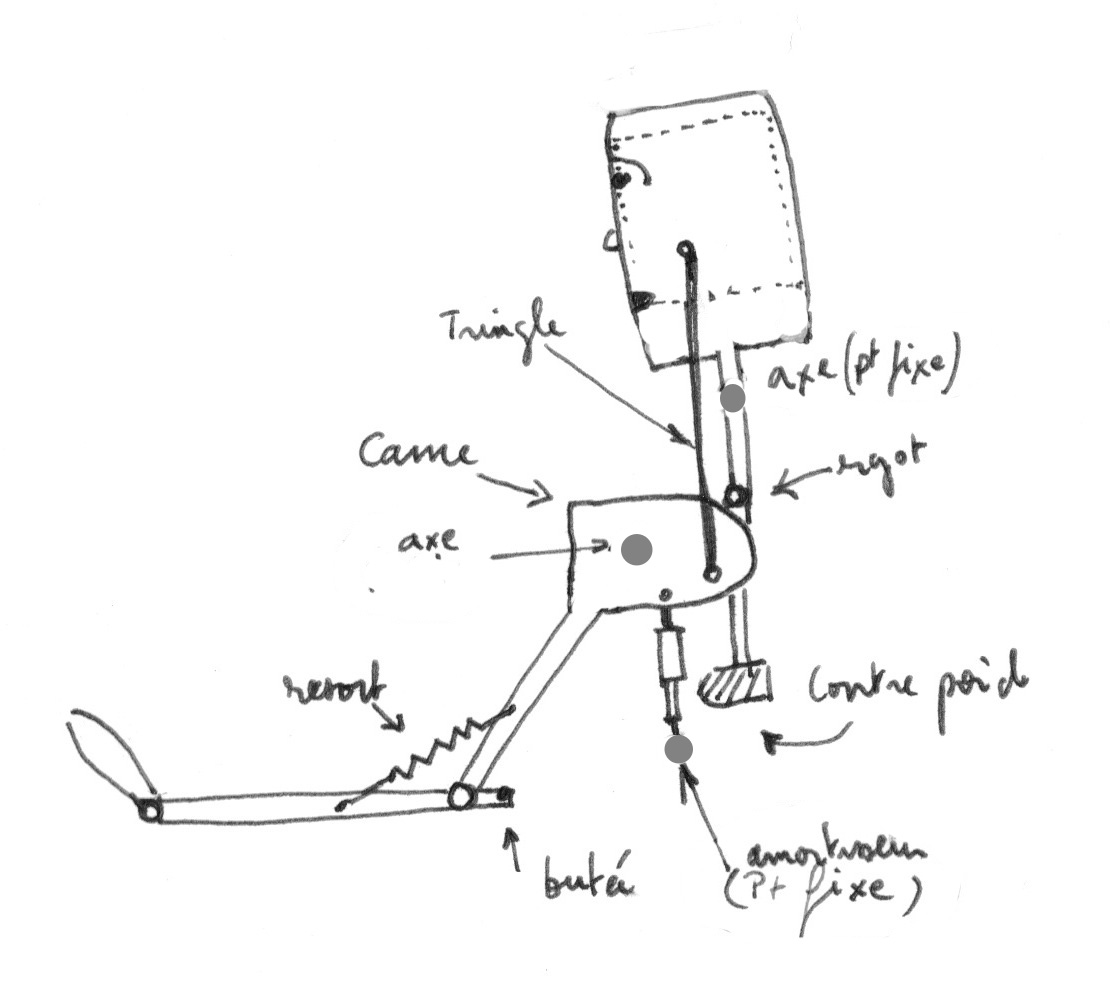 Tringle
axe (pt fixe)
Came
ergot
axe
resort
Contre poids
buteé
amortisseur
(Pt fixe)